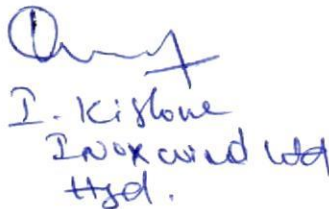 I. Kishore
Inox wind Ltd
Hyd.